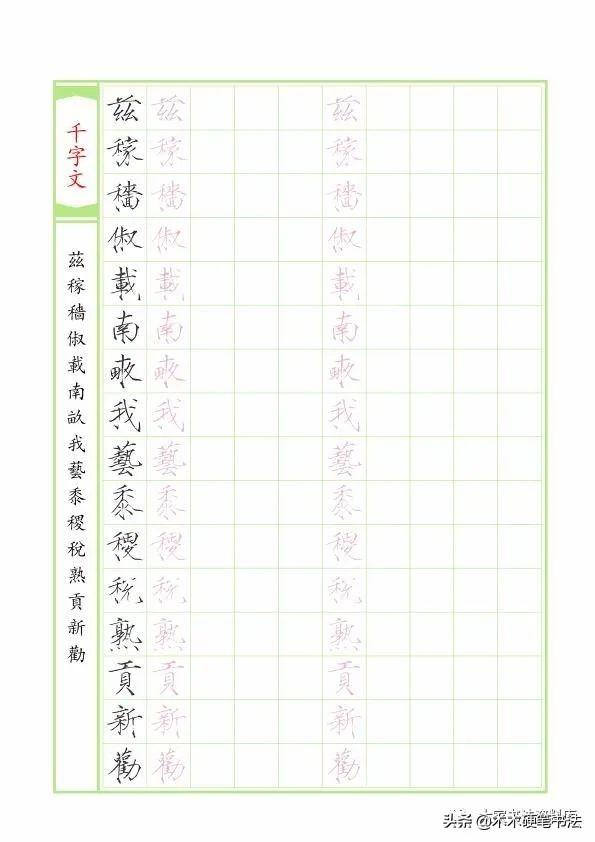 千字文
茲稼穡俶載南畝我藝黍稷稅熟貢新勸
茲稼穡俶載南畝我藝黍稷稅熟貢新勸
茲稼穡俶載南畝我藝黍稷稅熟貢新勸
茲稼穡俶載南畝我藝黍稷稅熟貢新勸
头条 @木木硬笔书法